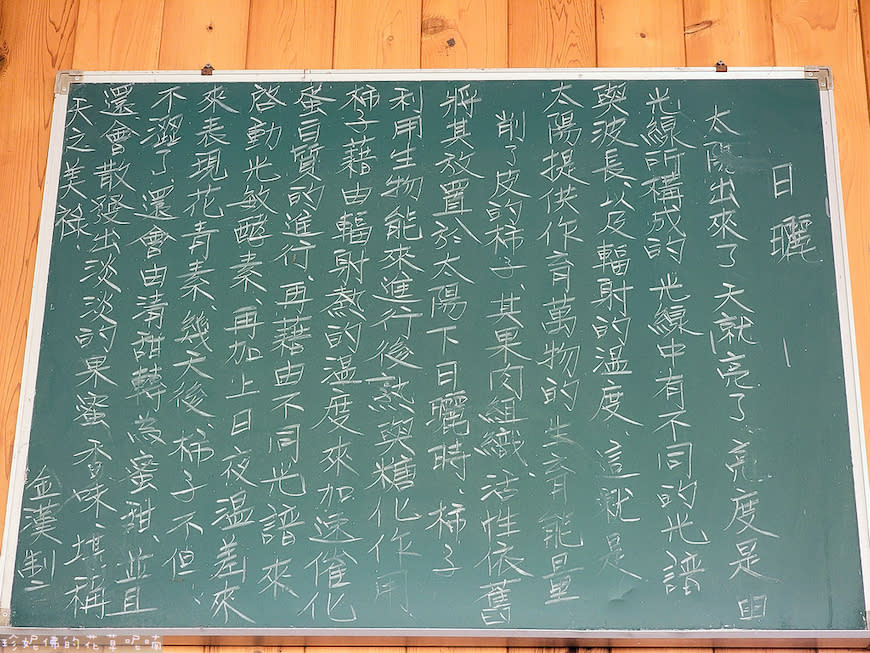 日曬
太陽出來了天就亮了亮度是由
光線所構成的、光線中有不同的光譜
與波長以及輻射的溫度、這就是
太陽提供作育萬物的生育能量
削了皮的柿子、其果肉組織活性依舊
將其放置於太陽下日曬時、柿子
利用生物能來進行後熟與糖化作用
柿子藉由輻射熱的溫度來加速催化
蛋白質的進行、再藉由不同光譜來
啓動光敏酶素、再加上日夜溫差來
來表現花青素、幾天後柿子不但
不澀了還會由清甜轉為蜜甜、並且
還會散發出淡淡的果蜜香味、堪稱
天之美祿、
金漢製
珍妮佛的花草呢喃